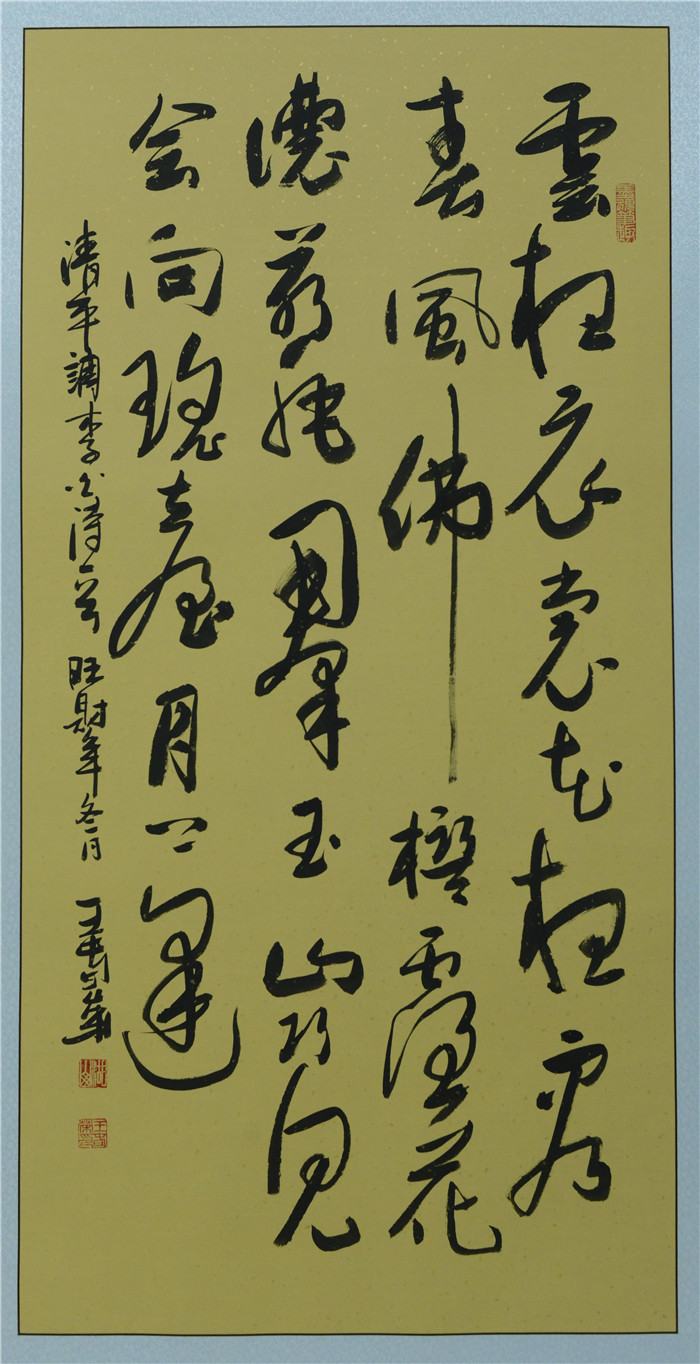 雲想衣裳花想容
春風拂檻露花
濃若非羣玉山頭見
会向瑤臺月下逢
清平調李白詩一首 旺財年冬月